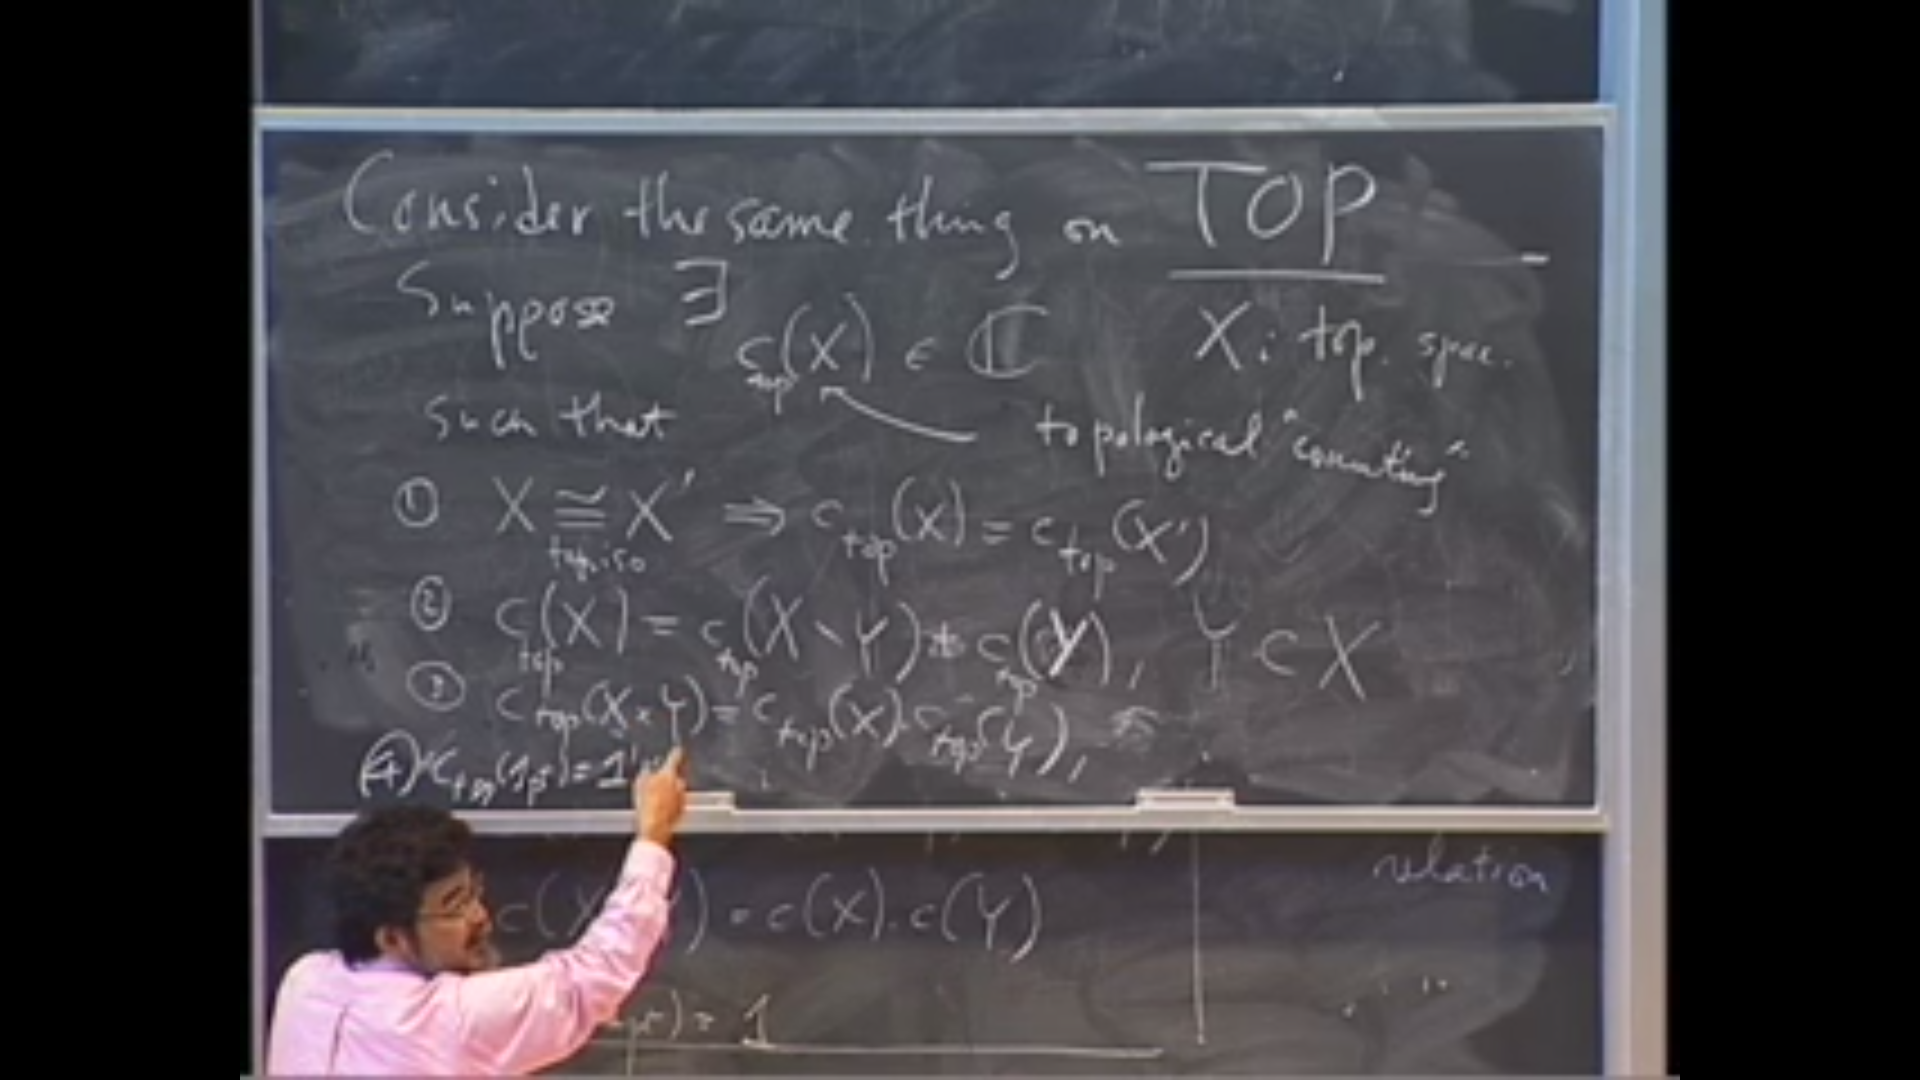 Consider the same thing on TOP
Suppose ∃ c_top(X) ∈ ℂ X: top. space.
such that topological "counting".
① X ≅ X' ⇒ c_top(X) = c_top(X')
top.iso
② c_top(X) = c_top(X \ Y) + c_top(Y), Y ⊂ X
③ c_top(X × Y) = c_top(X) · c_top(Y),
④ c_top(1pt) = 1
relation
) = c(X) · c(Y)
) = 1